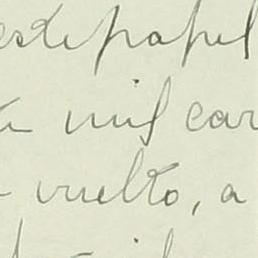 este papel
mil car
vuelto, a